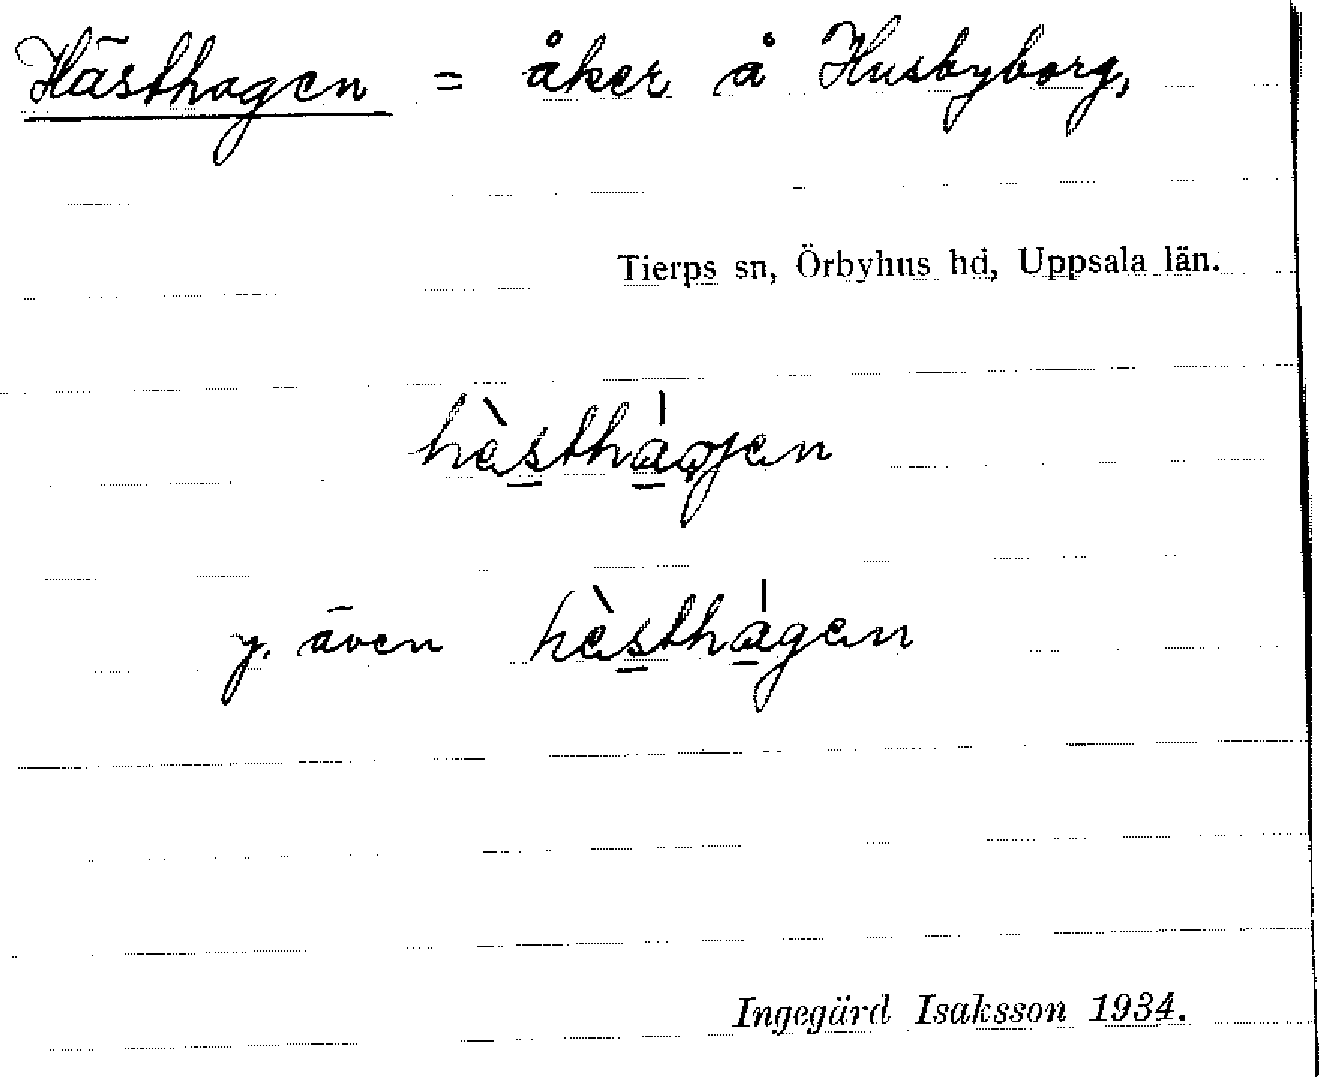 Hästhagen = åker å Husbyborg,
Tierps sn, Örbyhus hd, Uppsala län.
hὲsthágen
y. även hὲsthágen
Ingegärd Isaksson 1934.